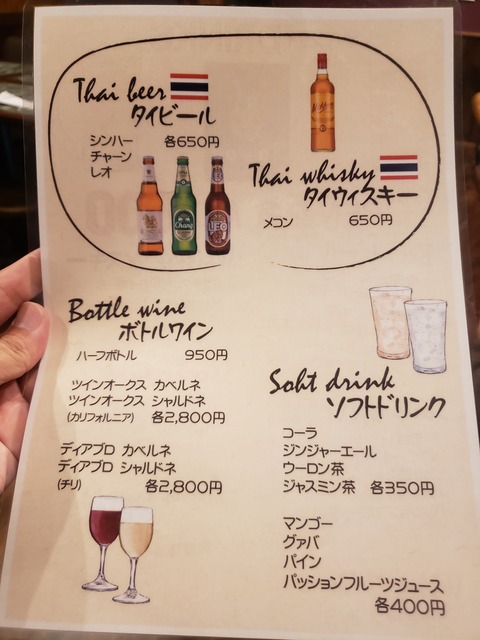 Thai beer
タイビール
シンハー 各650円
チャーン
レオ
Chang
LEO
Thai whisky
タイウィスキー
メコン 650円
Bottle wine
ボトルワイン
ハーフボトル 950円
ツインオークス カベルネ
ツインオークス シャルドネ
(カリフォルニア) 各2,800円
ディアブロ カベルネ
ディアブロ シャルドネ
(チリ) 各2,800円
Soht drink
ソフトドリンク
コーラ
ジンジャーエール
ウーロン茶
ジャスミン茶 各350円
マンゴー
グァバ
パイン
パッションフルーツジュース
各400円